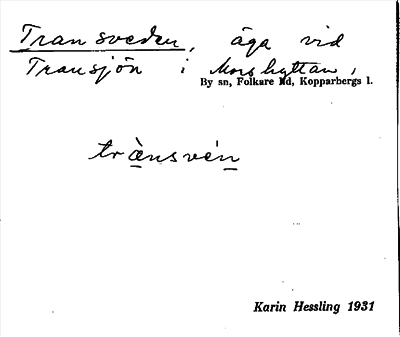 Transveden, äga vid
Transjön i Morshyttan,
By sn, Folkare hd, Kopparbergs l.
trànsvén
Karin Hessling 1931